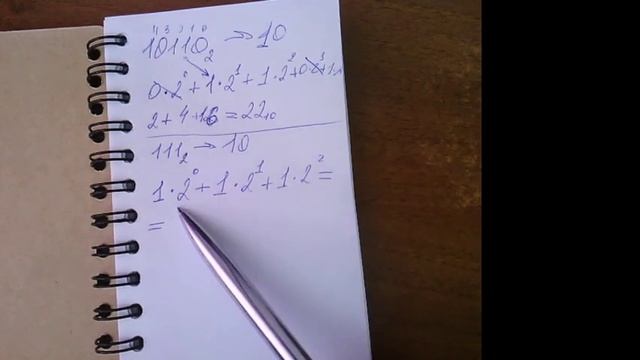 4 3 2 1 0
10110₂ → 10
0·2⁰ + 1·2¹ + 1·2² + 0·2³ + 1·
2 + 4 + 16 = 22₁₀
111₂ → 10
1·2⁰ + 1·2¹ + 1·2² =
=